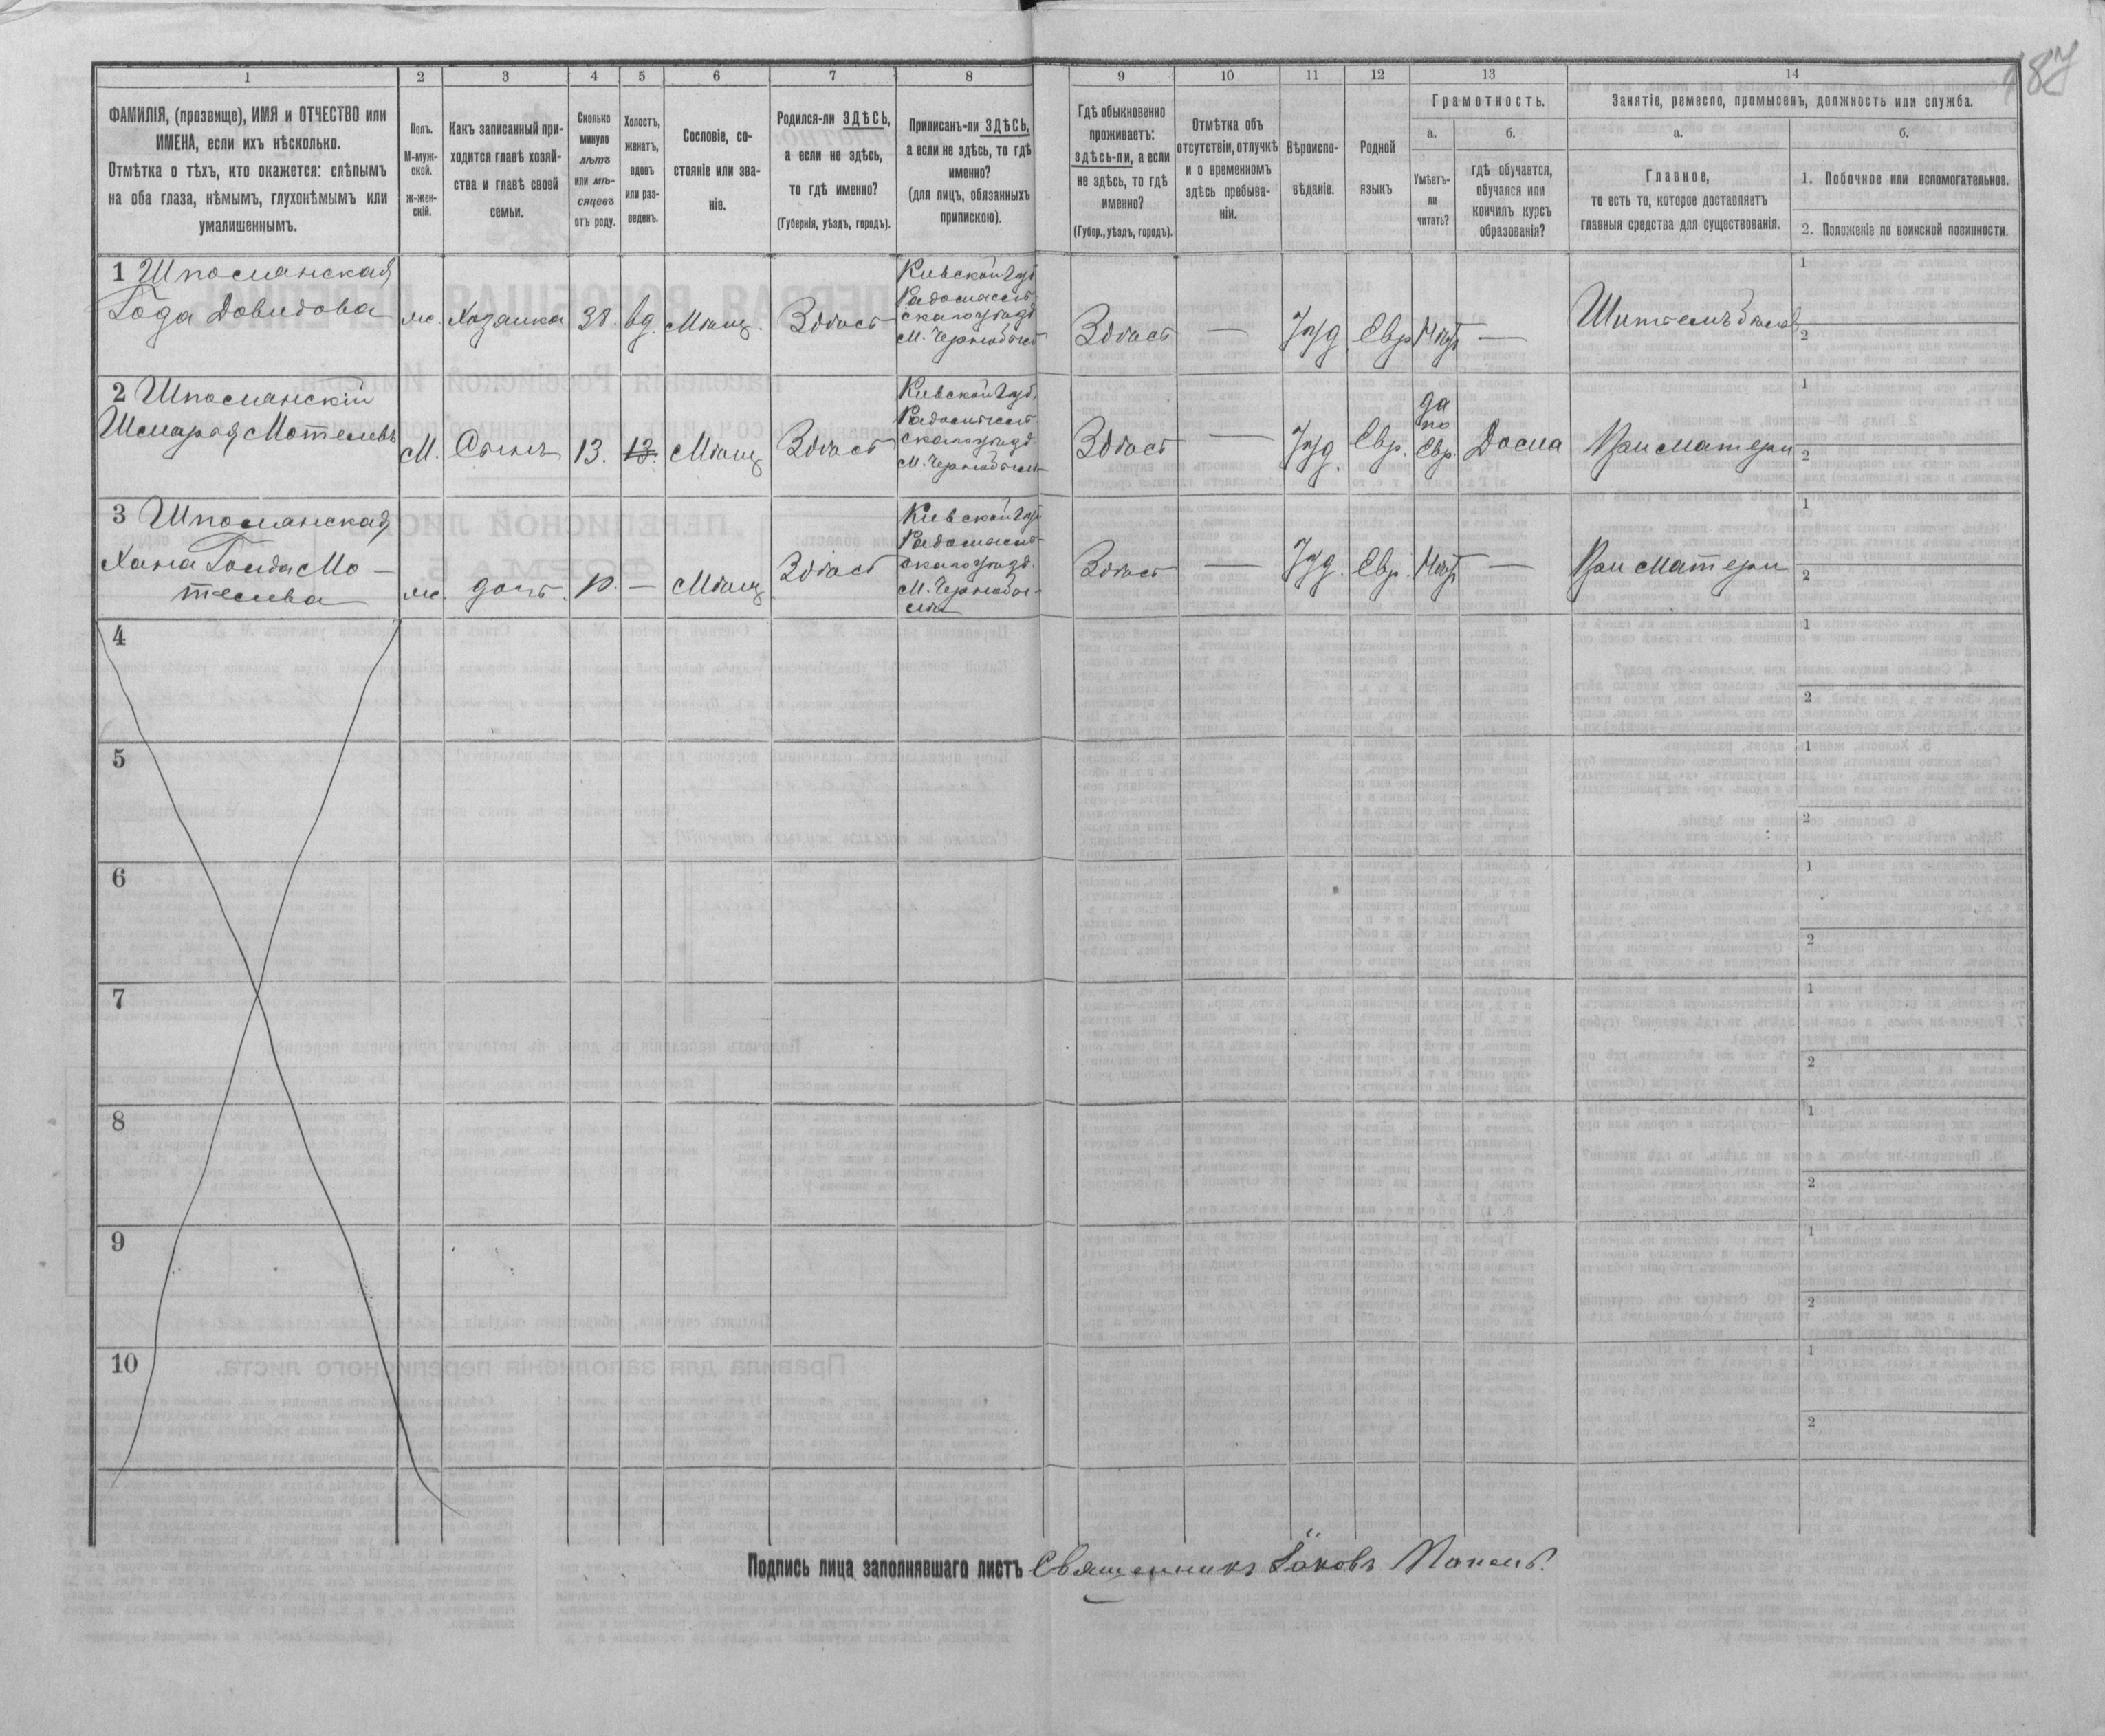 187
1
2
3
4
5
6
7
8
9
10
11
12
13
14
ФАМИЛІЯ, (прозвище), ИМЯ и ОТЧЕСТВО или
ИМЕНА, если ихъ нѣсколько.
Отмѣтка о тѣхъ, кто окажется: слѣпымъ
на оба глаза, нѣмымъ, глухонѣмымъ или
умалишеннымъ.
Полъ.
М-муж-
ской.
ж-жен-
скій.
Какъ записанный при-
ходится главѣ хозяй-
ства и главѣ своей
семьи.
Сколько
минуло
лѣтъ
или мѣ-
сяцевъ
отъ роду.
Холостъ,
женатъ,
вдовъ
или раз-
веденъ.
Сословіе, со-
стояніе или зва-
ніе.
Родился-ли ЗДѢСЬ,
а если не здѣсь,
то гдѣ именно?
(Губернія, уѣздъ, городъ).
Приписанъ-ли ЗДѢСЬ,
а если не здѣсь, то гдѣ
именно?
(для лицъ, обязанныхъ
припискою).
Гдѣ обыкновенно
проживаетъ:
здѣсь-ли, а если
не здѣсь, то гдѣ
именно?
(Губер., уѣздъ, городъ).
Отмѣтка объ
отсутствіи, отлучкѣ
и о временномъ
здѣсь пребыва-
ніи.
Вѣроиспо-
вѣданіе.
Родной
языкъ
Грамотность.
а.
Умѣетъ-
ли
читать?
б.
гдѣ обучается,
обучался или
кончилъ курсъ
образованія?
Занятіе, ремесло, промыселъ, должность или служба.
а.
Главное,
то есть то, которое доставляетъ
главныя средства для существованія.
б.
1. Побочное или вспомогательное.
2. Положеніе по воинской повинности.
1 Шполянская
Года Довидова
ж. Хозяика 38. вд. Мѣщ. Здѣсь
Кіевской губ
Радомысль-
скаго уѣзда
М. Чернобыль
Здѣсь — Іуд. Евр. Нѣтъ —
1
2
2 Шполянскій
Шмаря Мотелевъ
М. Сынъ 13. 13. Мѣщ Здѣсь
Кіевской губ.
Радомысль-
скаго уѣзда
М. Чернобыль
Здѣсь — Іуд. Евр.
да
по
Евр.
Дома При матери
1
2
3 Шполянская
Хана Голда Мо-
телева
ж. дочь. 10. — Мѣщ Здѣсь
Кіевской губ
Радомысль-
скаго уѣзда.
М. Чернобы-
ля
Здѣсь — Іуд. Евр. Нѣтъ — При матери
1
2
4
1
2
5
1
2
6
1
2
7
1
2
8
1
2
9
1
2
10
1
2
Подпись лица заполнявшаго листъ Священникъ Іаковъ